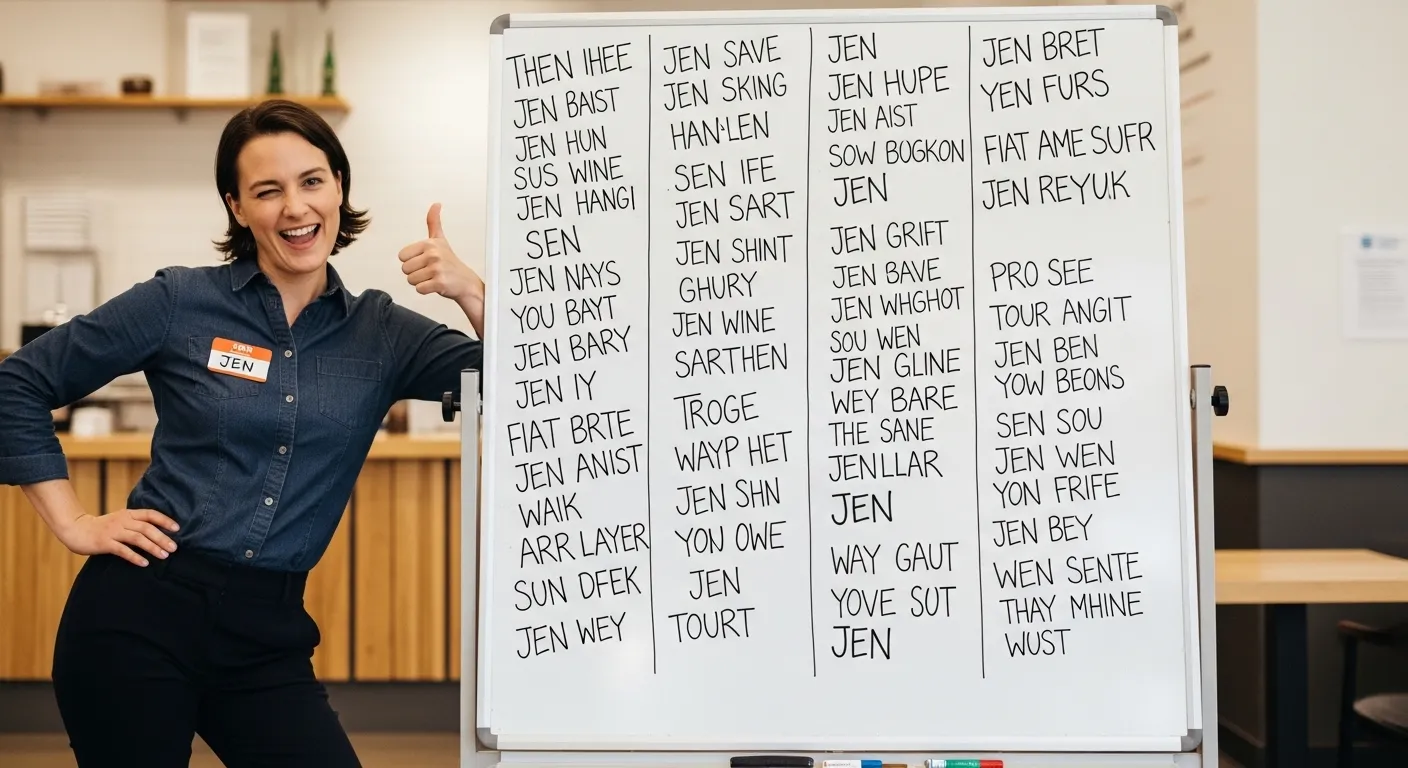 JEN
THEN IHEE
JEN BAIST
JEN HUN
SUS WINE
JEN HANGI
SEN
JEN NAYS
YOU BAYT
JEN BARY
JEN IY
FIAT BRTE
JEN ANIST
WAIK
ARR LAYER
SUN DFEK
JEN WEY
JEN SAVE
JEN SKING
HAN-LEN
SEN IFE
JEN SART
JEN SHINT
GHURY
JEN WINE
SARTHEN
TROGE
WAYP HET
JEN SHN
YON OWE
JEN
TOURT
JEN
JEN HUPE
JEN AIST
SOW BUGKON
JEN
JEN GRIFT
JEN BAVE
JEN WHGHOT
SOU WEN
JEN GLINE
WEY BARE
THE SANE
JENLLAR
JEN
WAY GAUT
YOVE SUT
JEN
JEN BRET
YEN FURS
FIAT AME SUFR
JEN REYUK
PRO SEE
TOUR ANGIT
JEN BEN
YOW BEONS
SEN SOU
JEN WEN
YON FRIFE
JEN BEY
WEN SENTE
THAY MHINE
WUST